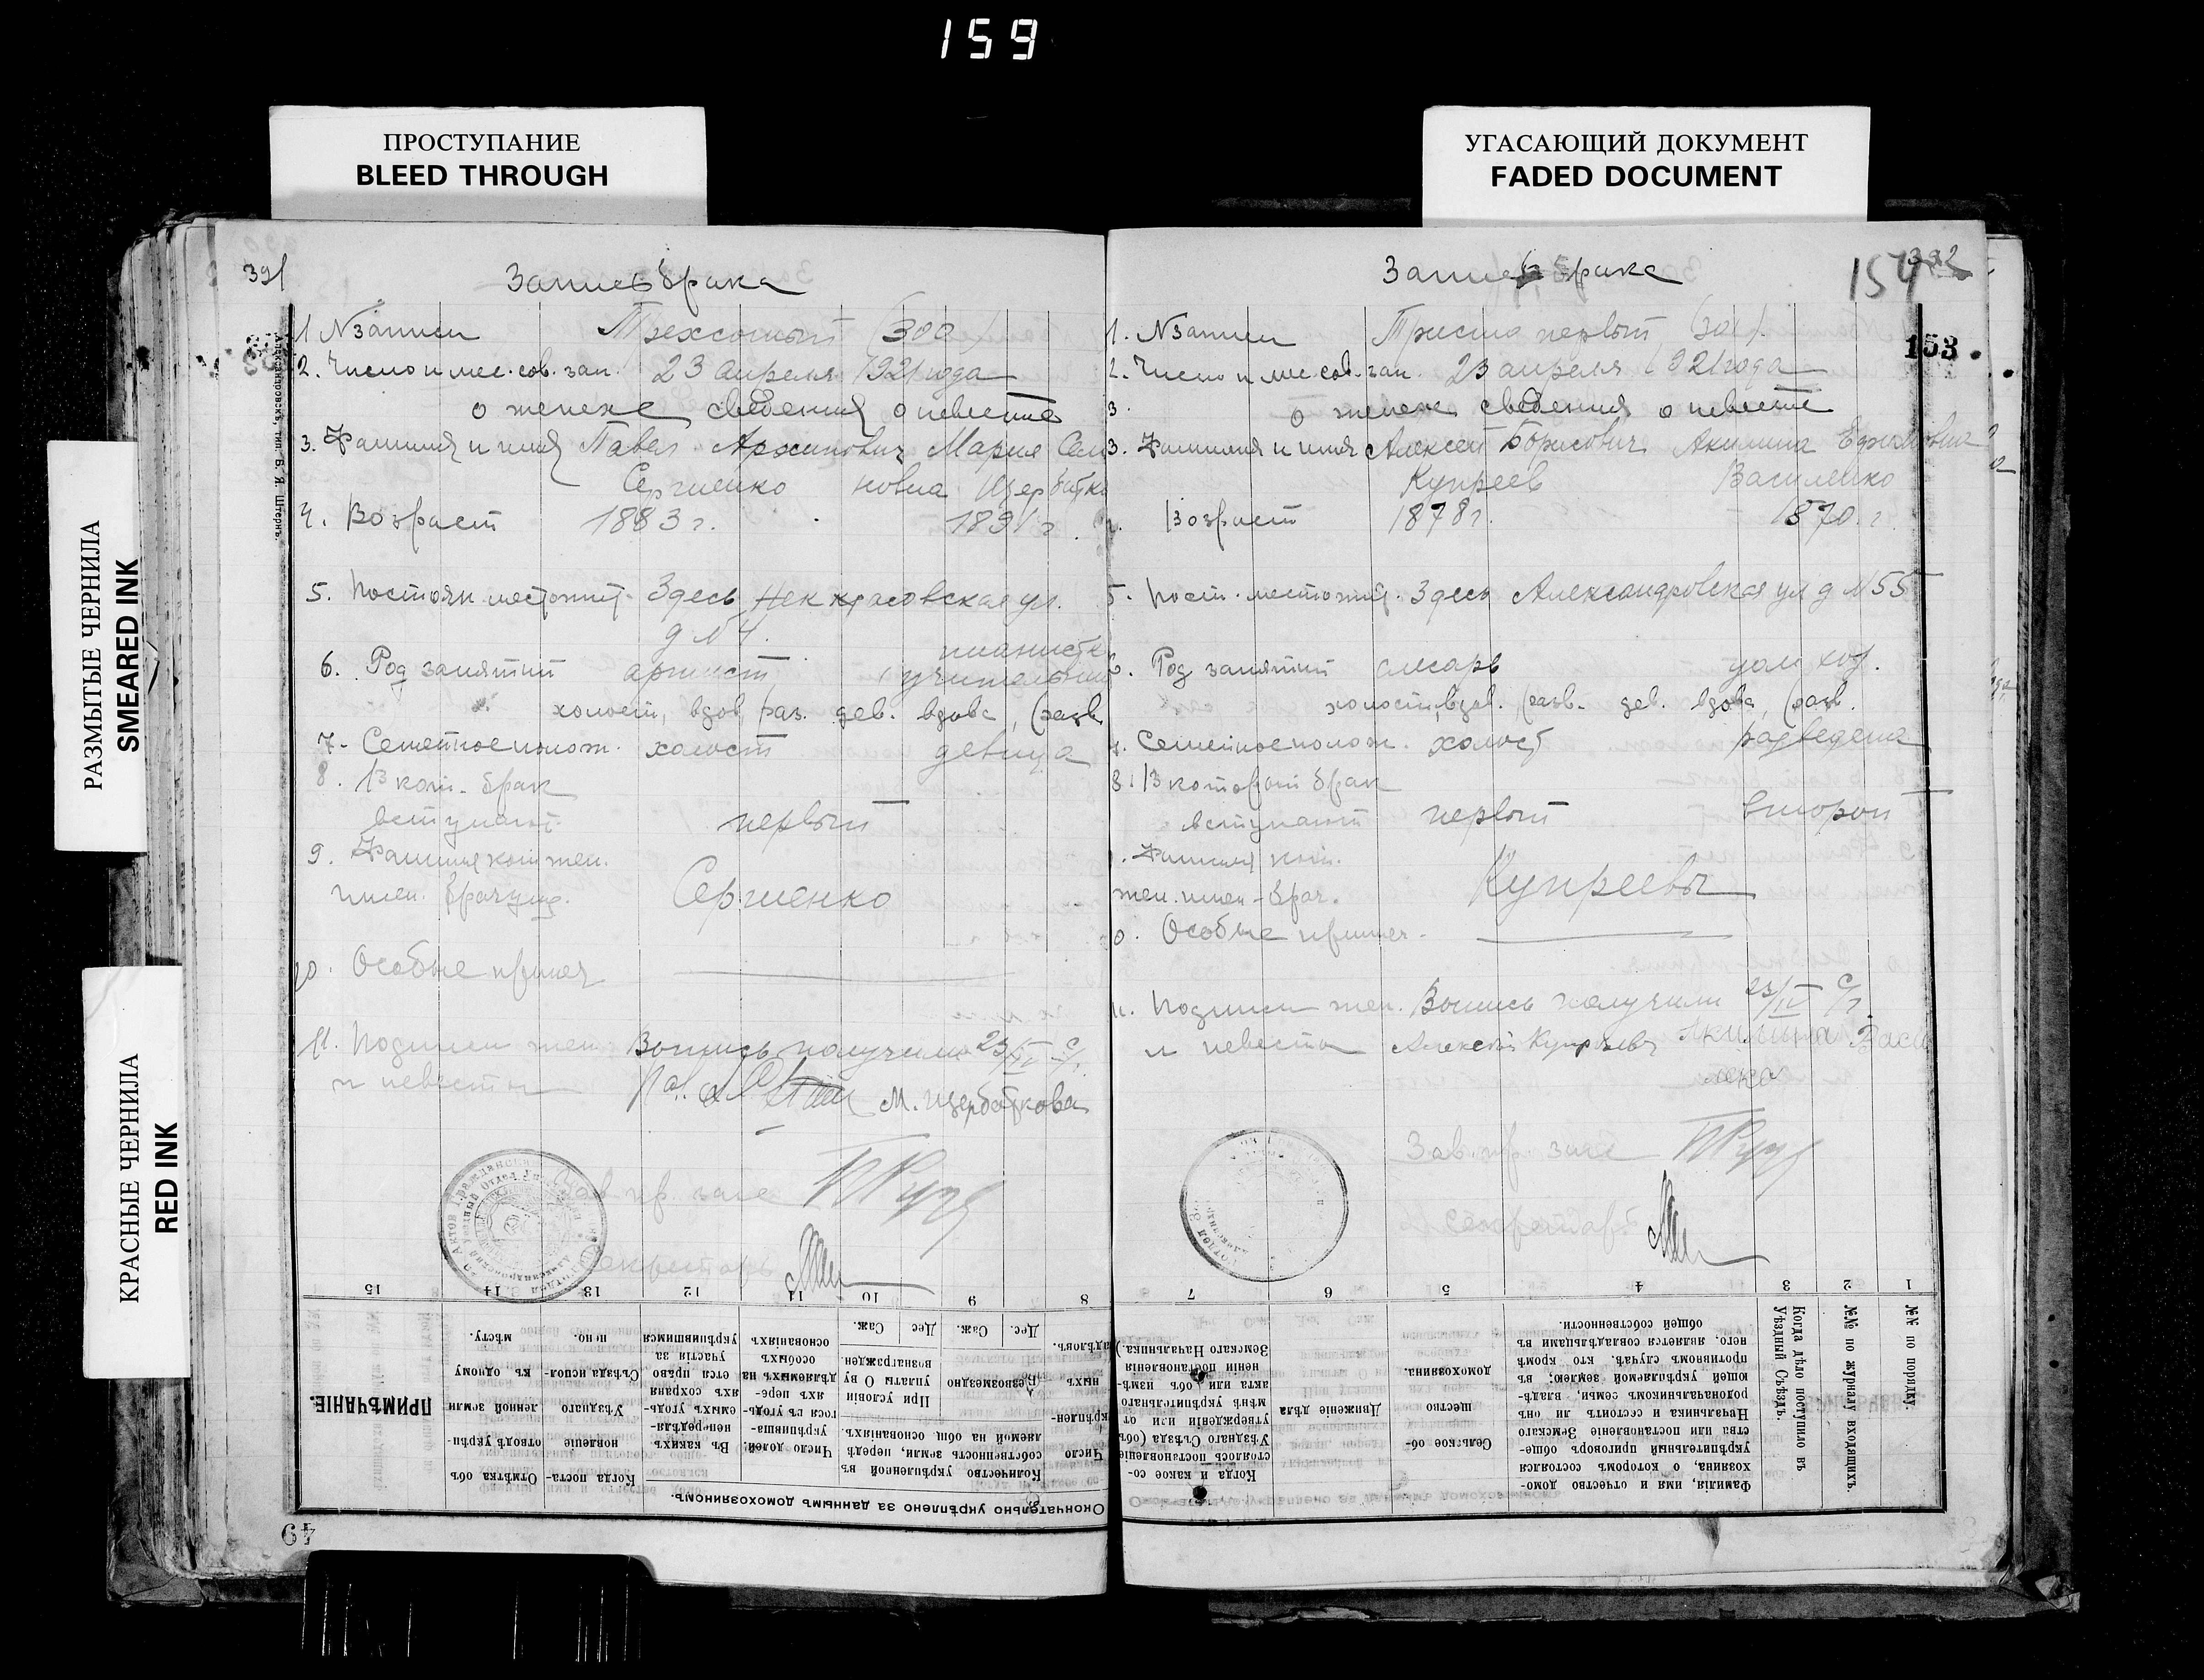 159
ПРОСТУПАНИЕ
BLEED THROUGH
УГАСАЮЩИЙ ДОКУМЕНТ
FADED DOCUMENT
РАЗМЫТЫЕ ЧЕРНИЛА
SMEARED INK
КРАСНЫЕ ЧЕРНИЛА
RED INK
391
Запись брака
1 N записи Трехсотый (300)
2. Число и мес. сов. зап. 23 апреля 1921 года
о женихе сведения о невесте
3. Фамилия и имя Павел Архипович Мария Сем
Сергиенко новна Щербатко
4. Возраст 1883 г. 1891 г.
5. Постоян местожит. Здесь Некрасовская ул.
д N 4.
пианистк
6. Род занятий артист учительниц
холост, вдов, раз. дев. вдова, (разв.
7. Семейное полож. холост девица
8. В кот. брак
вступают первый
9. Фамилия кот. жен.
имен. брачущ. Сергиенко
10. Особые примеч
11. Подписи жен. Выпись получили 23/IV с/г.
и невесты М. Щербаткова
Зав. пр. загс
Секретарь
15 14 13 12 11 10 9 8
Окончательно укрѣплено за даннымъ домохозяиномъ.
Количество укрѣпленной въ собственность земли, передаваемой на общ. основаніяхъ.
Безмозмездно
При условіи уплаты О ву вознагражден.
Дес. Саж. Дес Саж.
Число долей, укрѣпившагося въ угодьяхъ передѣляемыхъ на особыхъ основаніяхъ
Въ какихъ непередѣляемыхъ угодьяхъ сохраняется право участія за укрѣпившимся
Когда постановленіе Уѣзднаго Съѣзда исполнено.
Отмѣтка объ отводѣ укрѣпленной земли къ одному мѣсту.
ПРИМѢЧАНІЕ.
Александровскъ, тип. Б. Я. Штернъ.
49
154
392
153
Запись брака
1. N записи Триста первый (301).
2. Число и мес сов. зап. 23 апреля 1921 года
3. о женихе сведения о невесте
3. Фамилия и имя Алексей Борисович Акилина Ефимовна
Купреев Василенко
4. Возраст 1878 г. 1870. г.
5. Пост. местожит. Здесь Александровская ул д N 55
6. Род занятий слесарь дом хоз.
холост, вдов. (разв. дев. вдова, (разв.
7. Семейное полож. холост разведена
8. В который брак
вступают первый второй
9. Фамилия кот.
жен. имен. брач. Купреевы
10. Особые примеч.
11. Подписи жен. Выпись получили 23/IV с/г.
и невесты Алексей Купреев Акилина Васи
ленко
Зав. пр. загс
Секретарь
7 6 5 4 3 2 1
№№ по порядку.
№№ по журналу входящихъ.
Когда дѣло поступило въ Уѣздный Съѣздъ.
Фамилія, имя и отчество домохозяина, о которомъ состоялся укрѣпительный приговоръ общества или постановленіе Земскаго Начальника и состоитъ ли онъ родоначальникомъ семьи, владѣющей укрѣпляемой землею; въ противномъ случаѣ, кто кромѣ него, является совладѣльцами въ общей собственности.
Сельское общество домохозяина.
Движеніе дѣла
Когда и какое состоялось постановленіе Уѣзднаго Съѣзда (объ утвержденіи или отмѣнѣ укрѣпительнаго акта или объ измѣненіи постановленія Земскаго Начальника.)